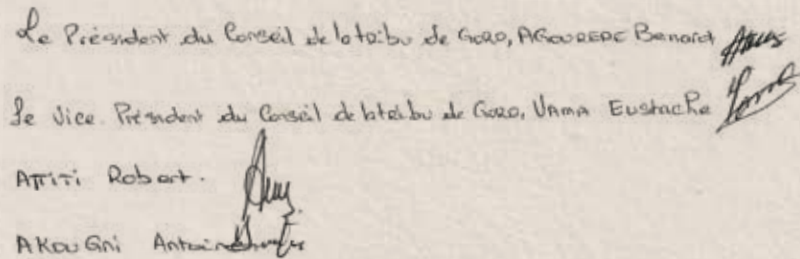 Le Président du Conseil de la tribu de GORO, AGOUREPE Benard
Le Vice Président du Conseil de la tribu de GORO, VAMA EUstache
ATTITI Robert.
AKOUGni Antoine